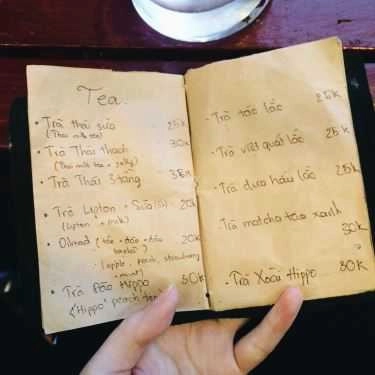 Tea.
• Trà thái sữa 25k
(Thai milk tea)
• Trà Thái thạch 30k
(Thai milk tea + jelly)
• Trà Thái 3 tầng 35k
• Trà Lipton + Sữa (S) 20k
(Lipton + milk)
• Oilned (táo + đào + dâu 20k
• (apple, peach, strawberry
+ mint)
• Trà Đào Hippo 30k
("Hippo" peach tea)
• Trà táo lắc 25k
• Trà việt quất lắc 25k
• Trà dưa hấu lắc 25k
• Trà matcha táo xanh
30k
• Trà Xoài Hippo 30k